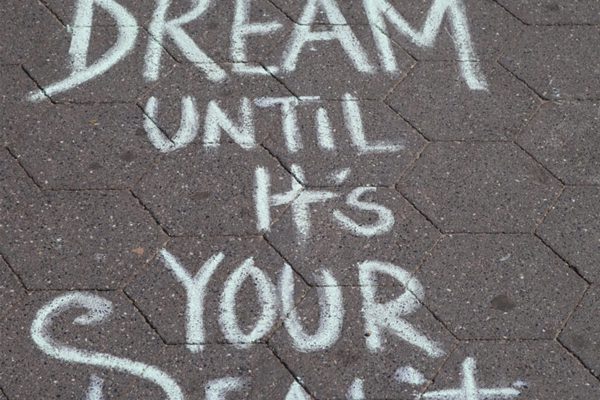 DREAM
UNTIL
It's
YOUR